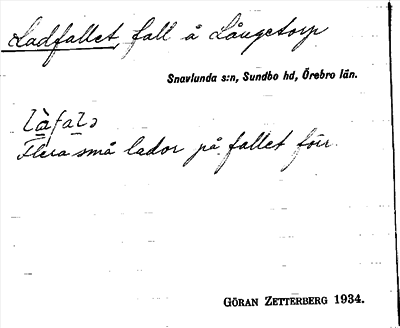 Ladfallet, fall å Långetorp
Snavlunda s:n, Sundbo hd, Örebro län.
làfalə
Flera små lador på fallet förr.
GÖRAN ZETTERBERG 1934.